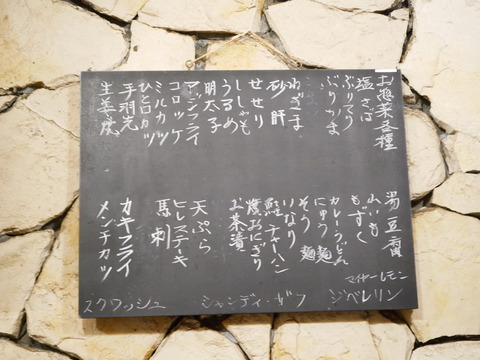 お惣菜各種
塩さば
ぶりてり
ぶりかま
ねぎま
砂肝
せせり
ししゃも
うるめ
明太子
アジフライ
コロッケ
ミルカツ
ひと口カツ
手羽先
生姜焼
湯豆腐
山いも
もずく
カレーうどん
にゅう麺
そう麺
いなり
鮭チャーハン
焼おにぎり
お茶漬
天ぷら
ヒレステーキ
馬刺
カキフライ
メンチカツ
マイヤーレモン
ジベレリン
シャンディ・ガフ
スクワッシュ